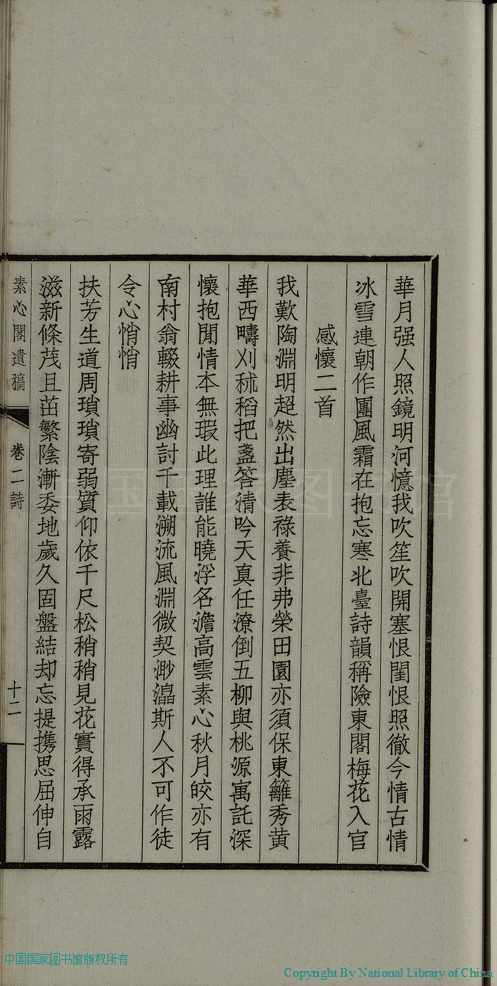 華月强人照鏡明河憶我吹笙吹開塞恨閨恨照徹今情古情
冰雪連朝作團風霜在抱忘寒北臺詩韻稱險東閣梅花入官
感懷二首
我歎陶淵明超然出塵表祿養非弗榮田園亦須保東籬秀黃
華西疇刈秫稻把盞答清吟天真任潦倒五柳與桃源寓託深
懷抱閒情本無瑕此理誰能曉浮名澹高雲素心秋月皎亦有
南村翁輟耕事幽討千載溯流風淵微契渺瀛斯人不可作徒
令心悄悄
扶芳生道周瑣瑣寄弱質仰依千尺松稍稍見花實得承雨露
滋新條茂且苗繁陰漸委地歲久固盤結却忘提攜思屈伸自
素心閣遺稿
卷二詩
十二
中国国家图书馆
中国国家图书馆版权所有
Copyright By National Library of China